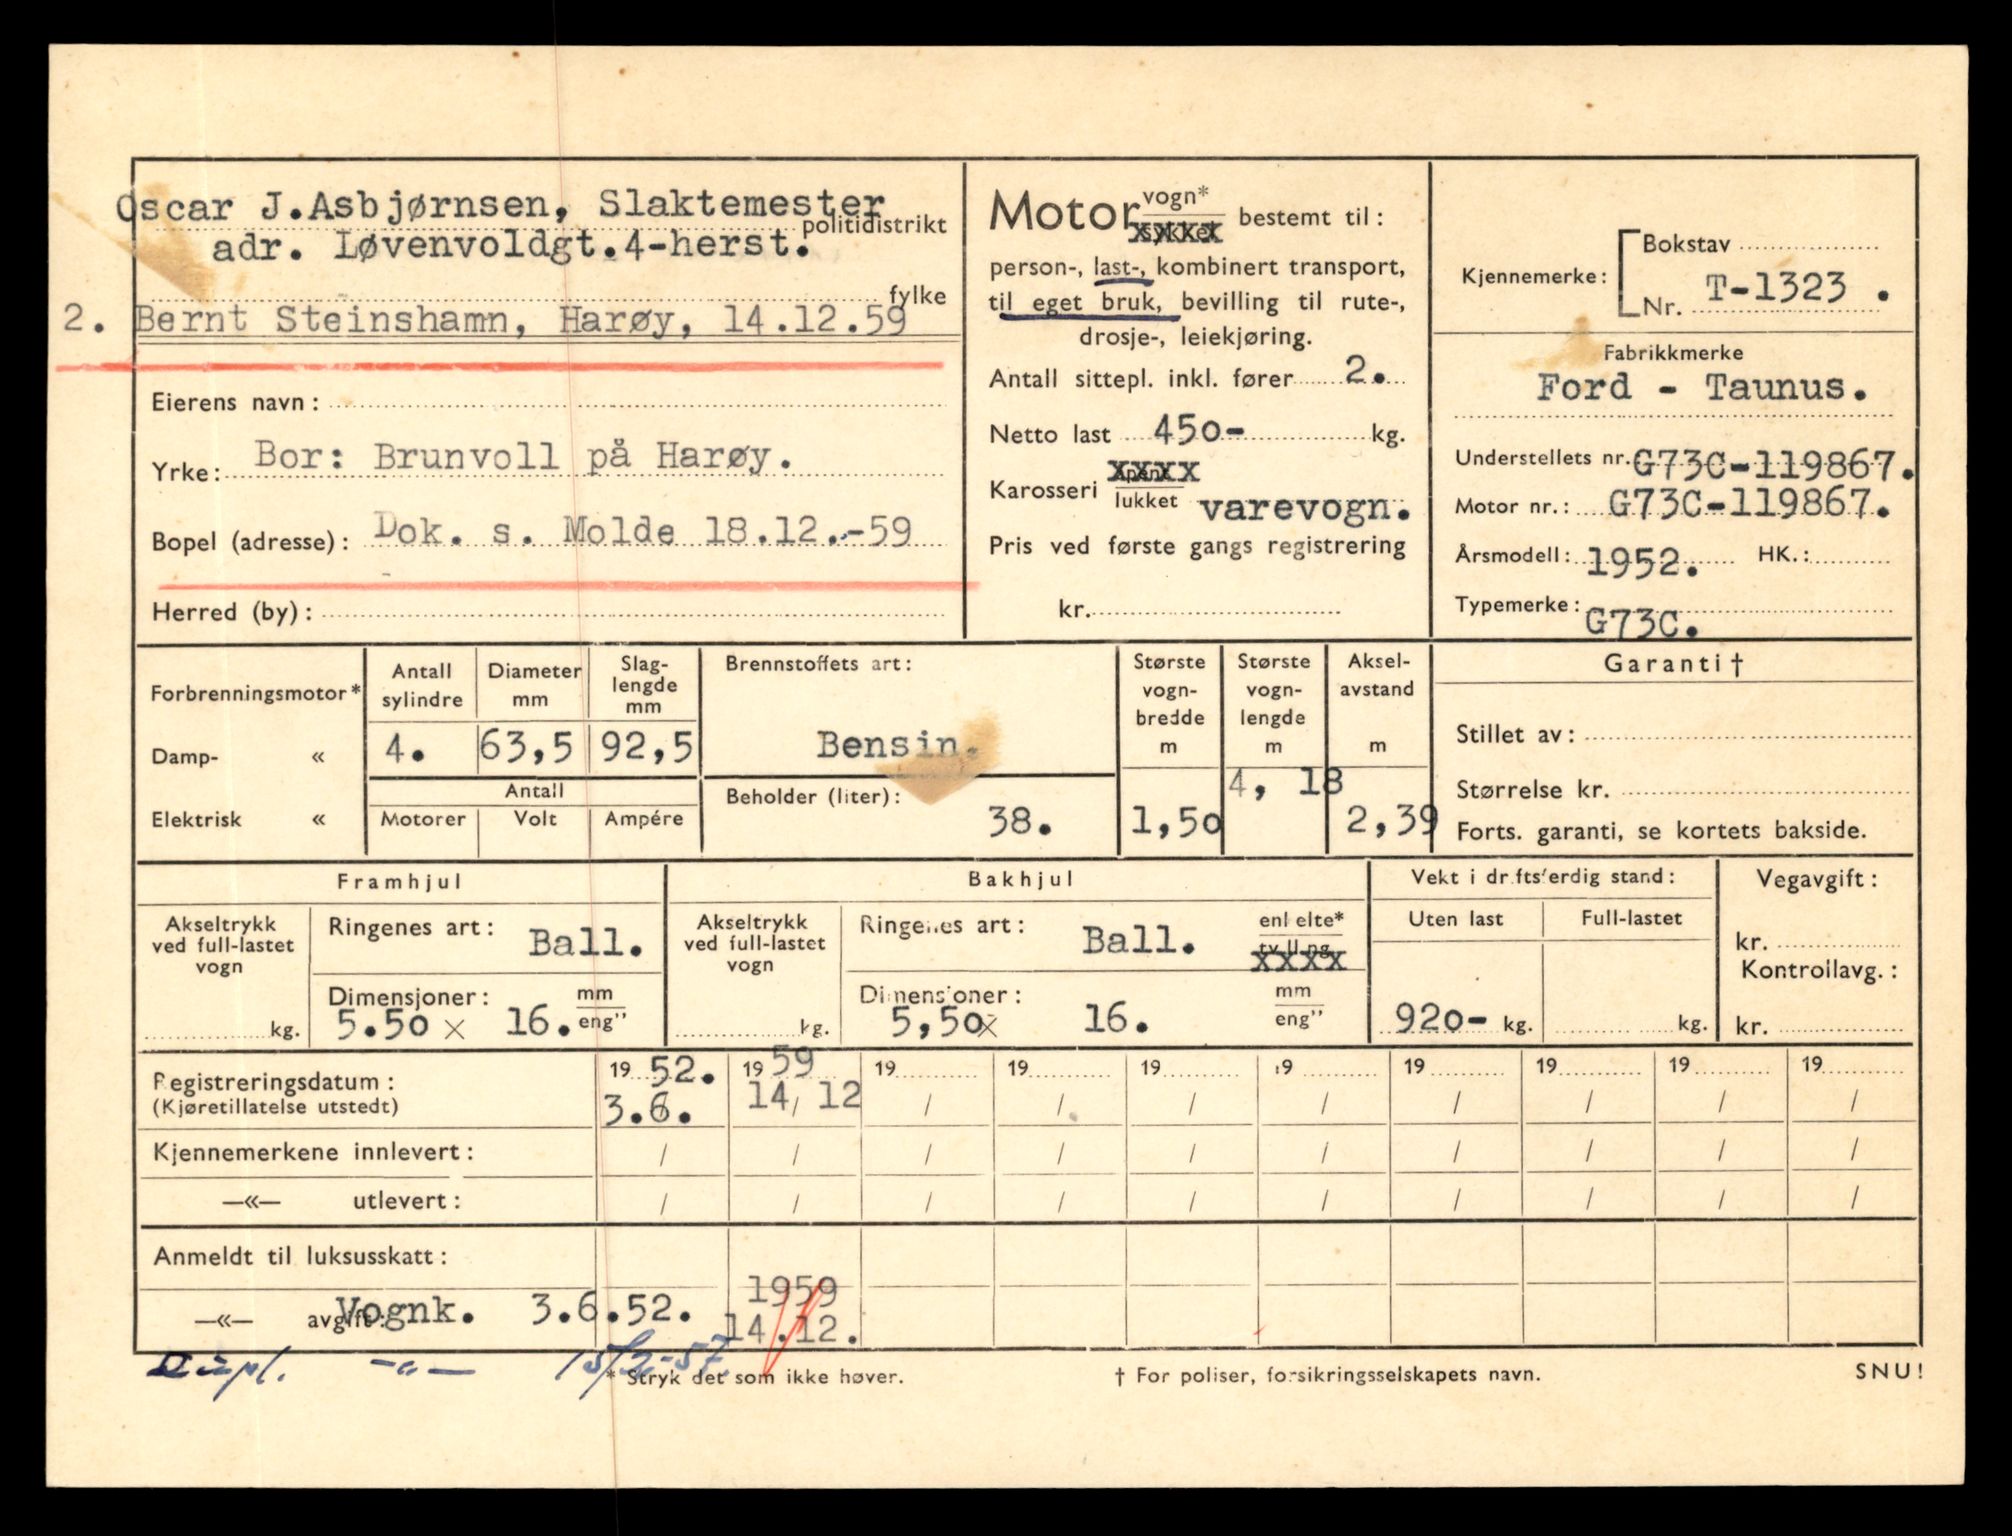 Oscar J.Asbjørnsen, Slaktemester
politidistrikt
adr. Løvenvoldgt.4-herst.
fylke
2. Bernt Steinshamn, Harøy, 14.12.59
Eierens navn:
Yrke: Bor: Brunvoll på Harøy.
Bopel (adresse): Dok. s. Molde 18.12.-59
Herred (by):
Motor vogn* sykkel bestemt til:
person-, last-, kombinert transport,
til eget bruk, bevilling til rute-,
drosje-, leiekjøring.
Antall sittepl. inkl. fører 2.
Netto last 450- kg.
Karosseri åpent lukket varevogn.
Pris ved første gangs registrering
kr.
Kjennemerke: Bokstav
Nr. T-1323 .
Fabrikkmerke
Ford - Taunus.
Understellets nr. G73C-119867.
Motor nr.: G73C-119867.
Årsmodell: 1952. HK.:
Typemerke: G73C.
Forbrenningsmotor*
Damp- «
Elektrisk «
Antall sylindre
Diameter mm
Slag-lengde mm
4. 63,5 92,5
Antall
Motorer Volt Ampére
Brennstoffets art:
Bensin.
Beholder (liter):
38.
Største vogn-bredde m
1,50
Største vogn-lengde m
4, 18
Aksel-avstand m
2,39
Garanti †
Stillet av:
Størrelse kr.
Forts. garanti, se kortets bakside.
Framhjul
Akseltrykk ved full-lastet vogn
kg.
Ringenes art: Ball.
Dimensjoner: mm
5.50 x 16. eng"
Bakhjul
Akseltrykk ved full-lastet vogn
kg.
Ringenes art: Ball. enl elte*
tv ll ng
Dimensjoner: mm
5,50 x 16. eng"
Vekt i driftsferdig stand:
Uten last Full-lastet
920- kg. kg.
Vegavgift:
kr.
Kontrollavg.:
kr.
Registreringsdatum: 19 52. 19 59 19 19 19 19 19 19 19 19
(Kjøretillatelse utstedt) 3.6. 14/ 12 / / / / / / / /
Kjennemerkene innlevert: / / / / / / / / / /
—«— utlevert: / / / / / / / / / /
Anmeldt til luksusskatt:
1959
—«— avgift: Vognk. 3.6.52. 14.12.
Dupl. -"- 15/3-57.
* Stryk det som ikke høver.
† For poliser, forsikringsselskapets navn.
SNU!